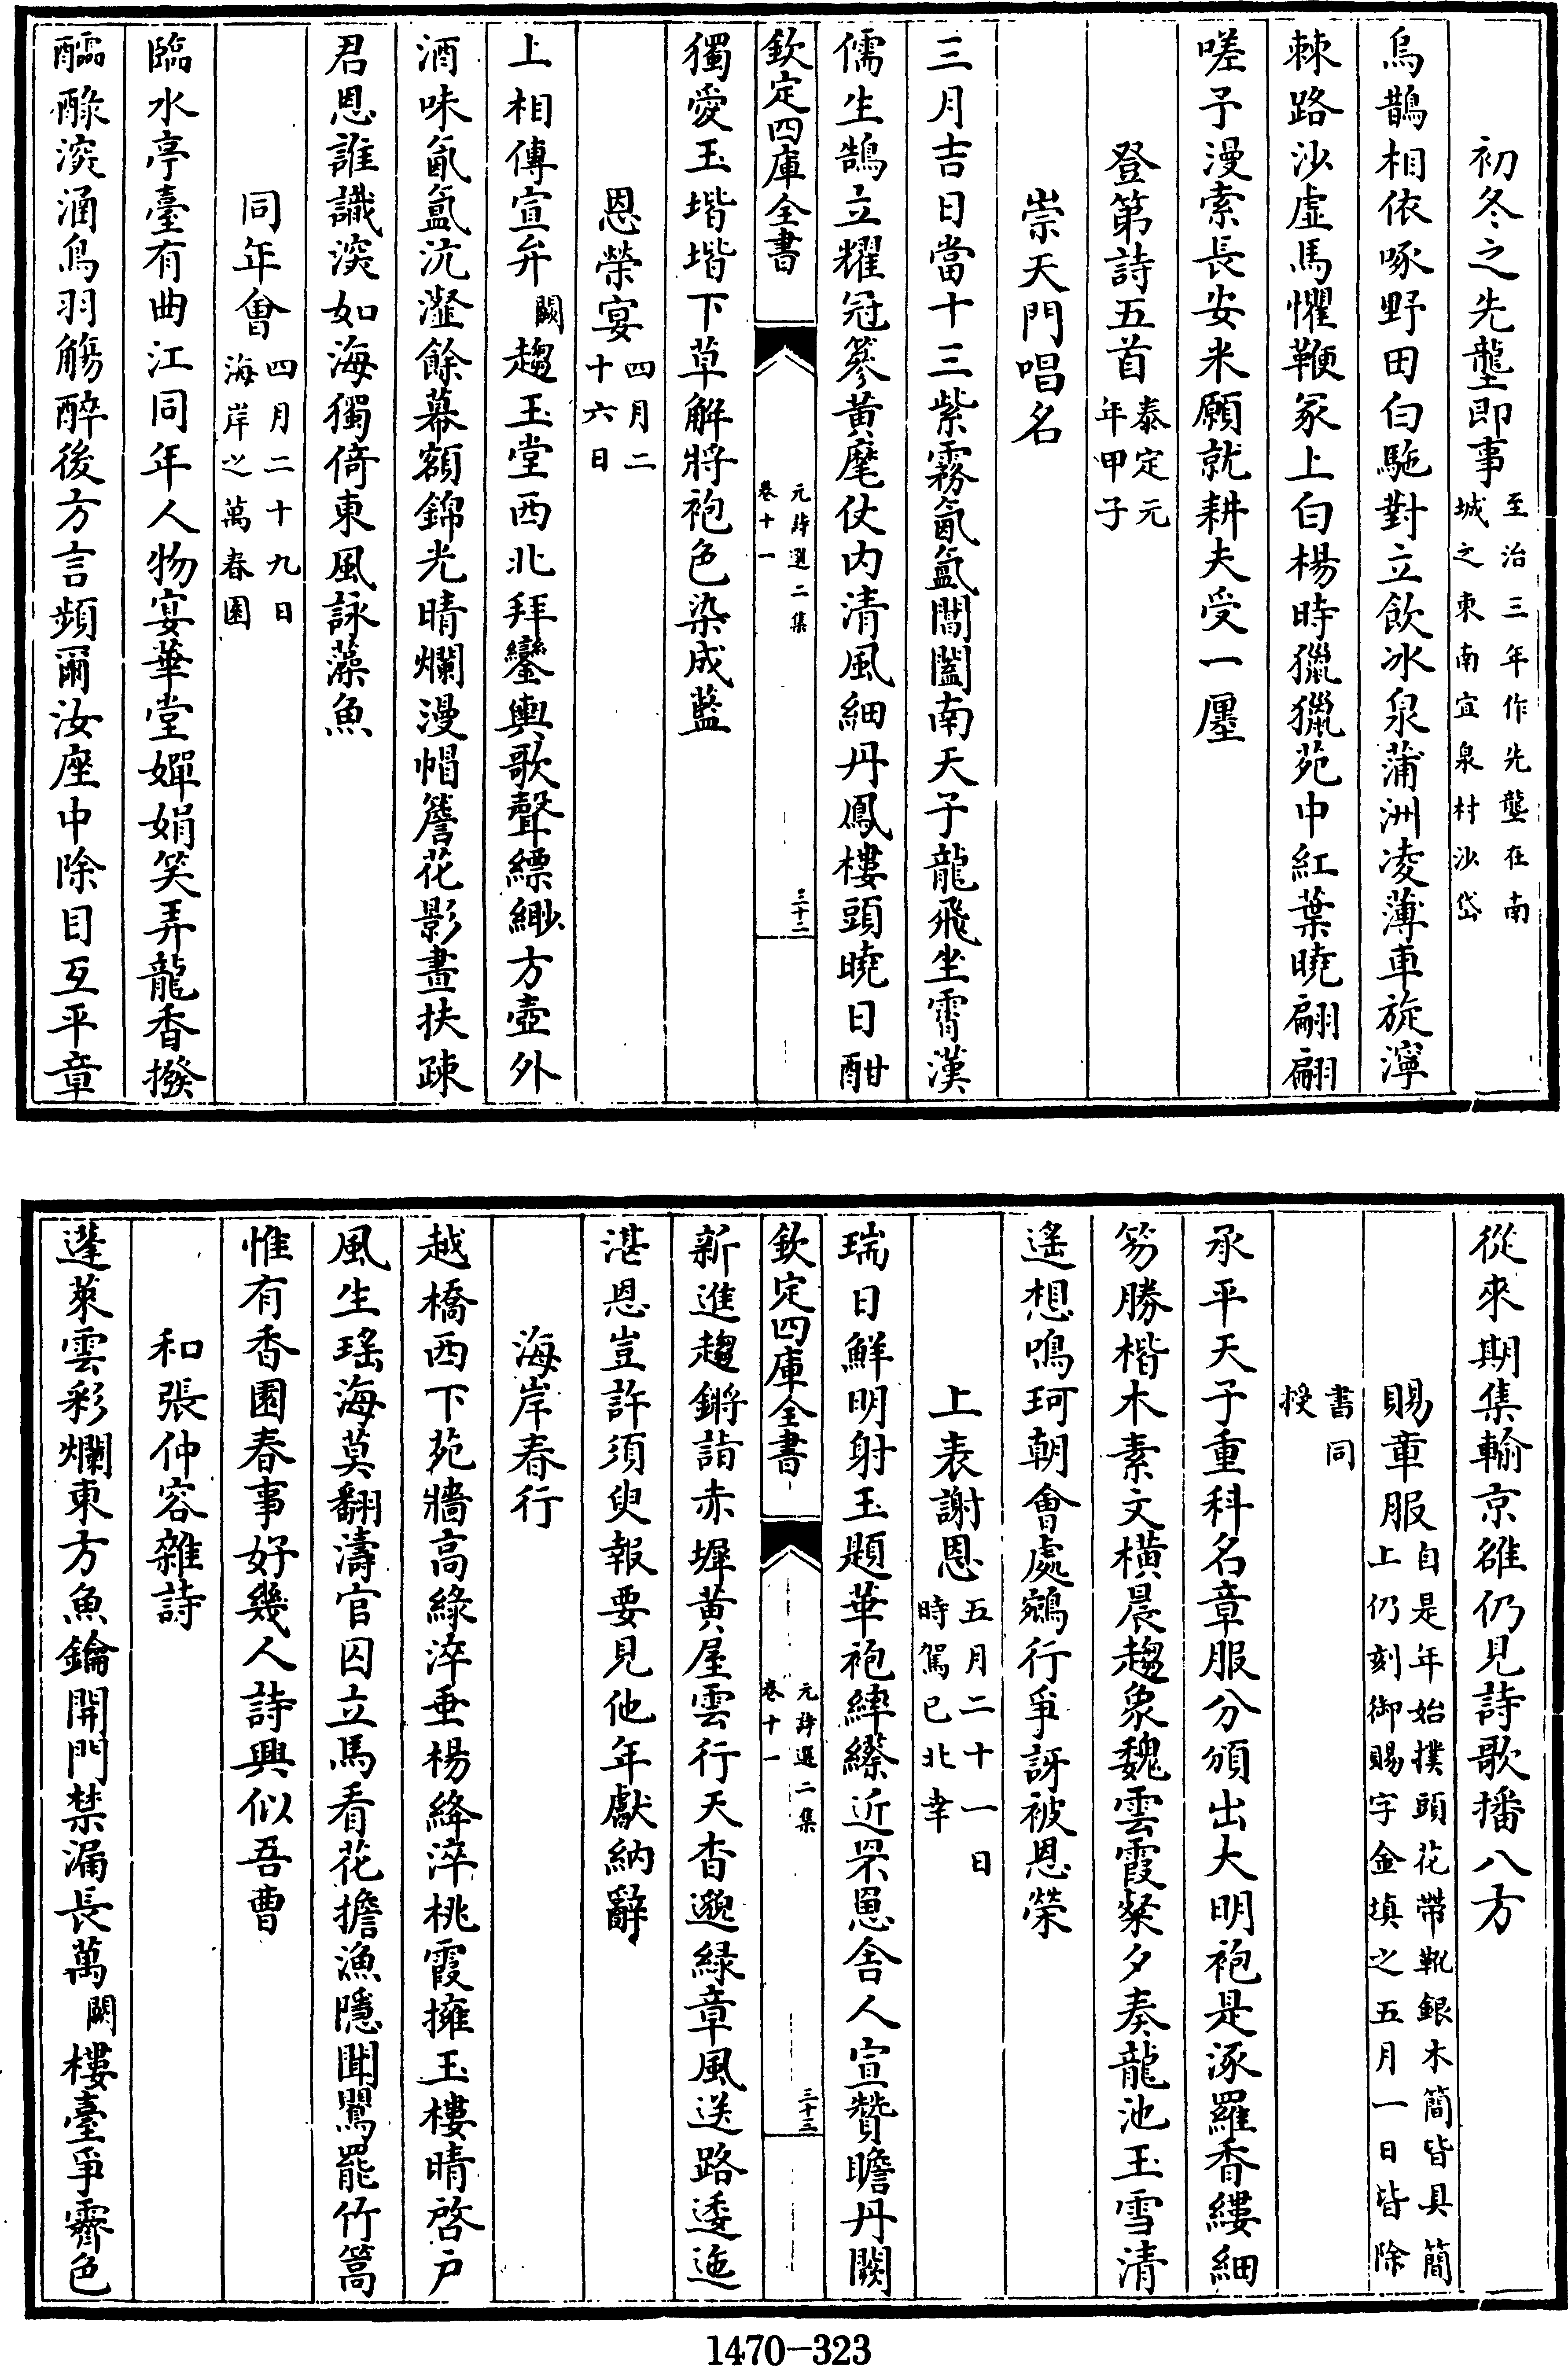 初冬之先壟即事至治三年作先壟在南城之東南宜泉村沙岱
烏鵲相依啄野田白駞對立飲冰泉蒲洲凌薄車旋濘
棘路沙虛馬懼鞭冢上白楊時獵獵苑中紅葉曉翩翩
嗟予漫索長安米願就耕夫受一廛
登第詩五首泰定元年甲子
崇天門唱名
三月吉日當十三紫霧氤氲閶闔南天子龍飛坐霄漢
儒生鵠立耀冠篸黃麾仗内清風細丹鳳樓頭曉日酣
欽定四庫全書
元詩選二集
卷十一
三十二
獨愛玉堦堦下草解將袍色染成藍
恩榮宴四月二十六日
上相傳宣弁闕趨玉堂西北拜鑾輿歌聲縹緲方壺外
酒味氤氲沆瀣餘幕額錦光晴爛漫帽簷花影晝扶疎
君恩誰識深如海獨倚東風詠藻魚
同年會四月二十九日海岸之萬春園
臨水亭臺有曲江同年人物宴華堂嬋娟笑弄龍香撥
醽醁深涵鳥羽觴醉後方言頻爾汝座中除目互平章
從來期集輸京雒仍見詩歌播八方
賜章服自是年始撲頭花帶靴銀木簡皆具簡上仍刻御賜字金填之五月一日皆除
書同授
承平天子重科名章服分頒出大明袍是涿羅香縷細
笏勝楷木素文橫晨趨象魏雲霞粲夕奏龍池玉雪清
遙想鳴珂朝會處鵷行爭訝被恩榮
上表謝恩五月二十一日時駕已北幸
瑞日鮮明射玉題華袍繂繺近罘罳舍人宣贊瞻丹闕
欽定四庫全書
元詩選二集
卷十一
三十三
新進趨鏘詣赤墀黃屋雲行天杳邈緑章風送路逶迤
湛恩豈許須臾報要見他年獻納辭
海岸春行
越橋西下苑牆高緑淬垂楊絳淬桃霞擁玉樓晴啓戶
風生瑤海莫翻濤官囚立馬看花擔漁隱聞鶯罷竹篙
惟有香園春事好幾人詩興似吾曹
和張仲容雜詩
蓬萊雲彩爛東方魚鑰開門禁漏長萬闕樓臺爭霽色
1470-323